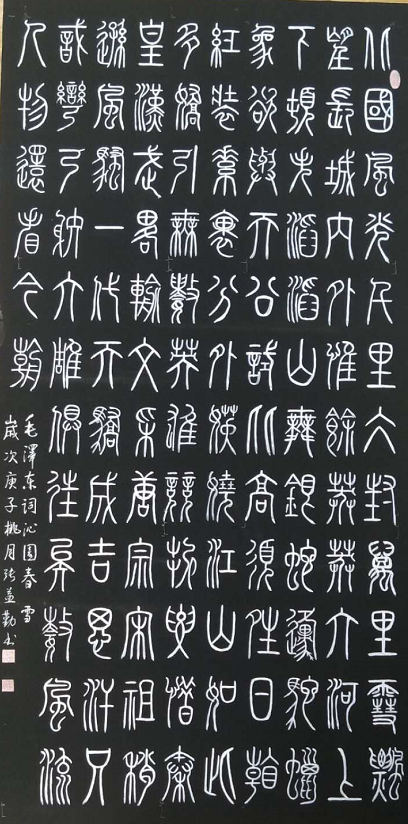 北國風光千里冰封萬里雪飄
望長城內外惟餘莽莽大河上
下頓失滔滔山舞銀蛇原馳蠟
象欲與天公試比高須晴日看
紅裝素裹分外妖嬈江山如此
多嬌引無數英雄競折腰惜秦
皇漢武略輸文采唐宗宋祖稍
遜風騷一代天驕成吉思汗只
識彎弓射大雕俱往矣數風流
人物還看今朝
毛澤東詞沁園春 雪
歲次庚子桃月張益勤书